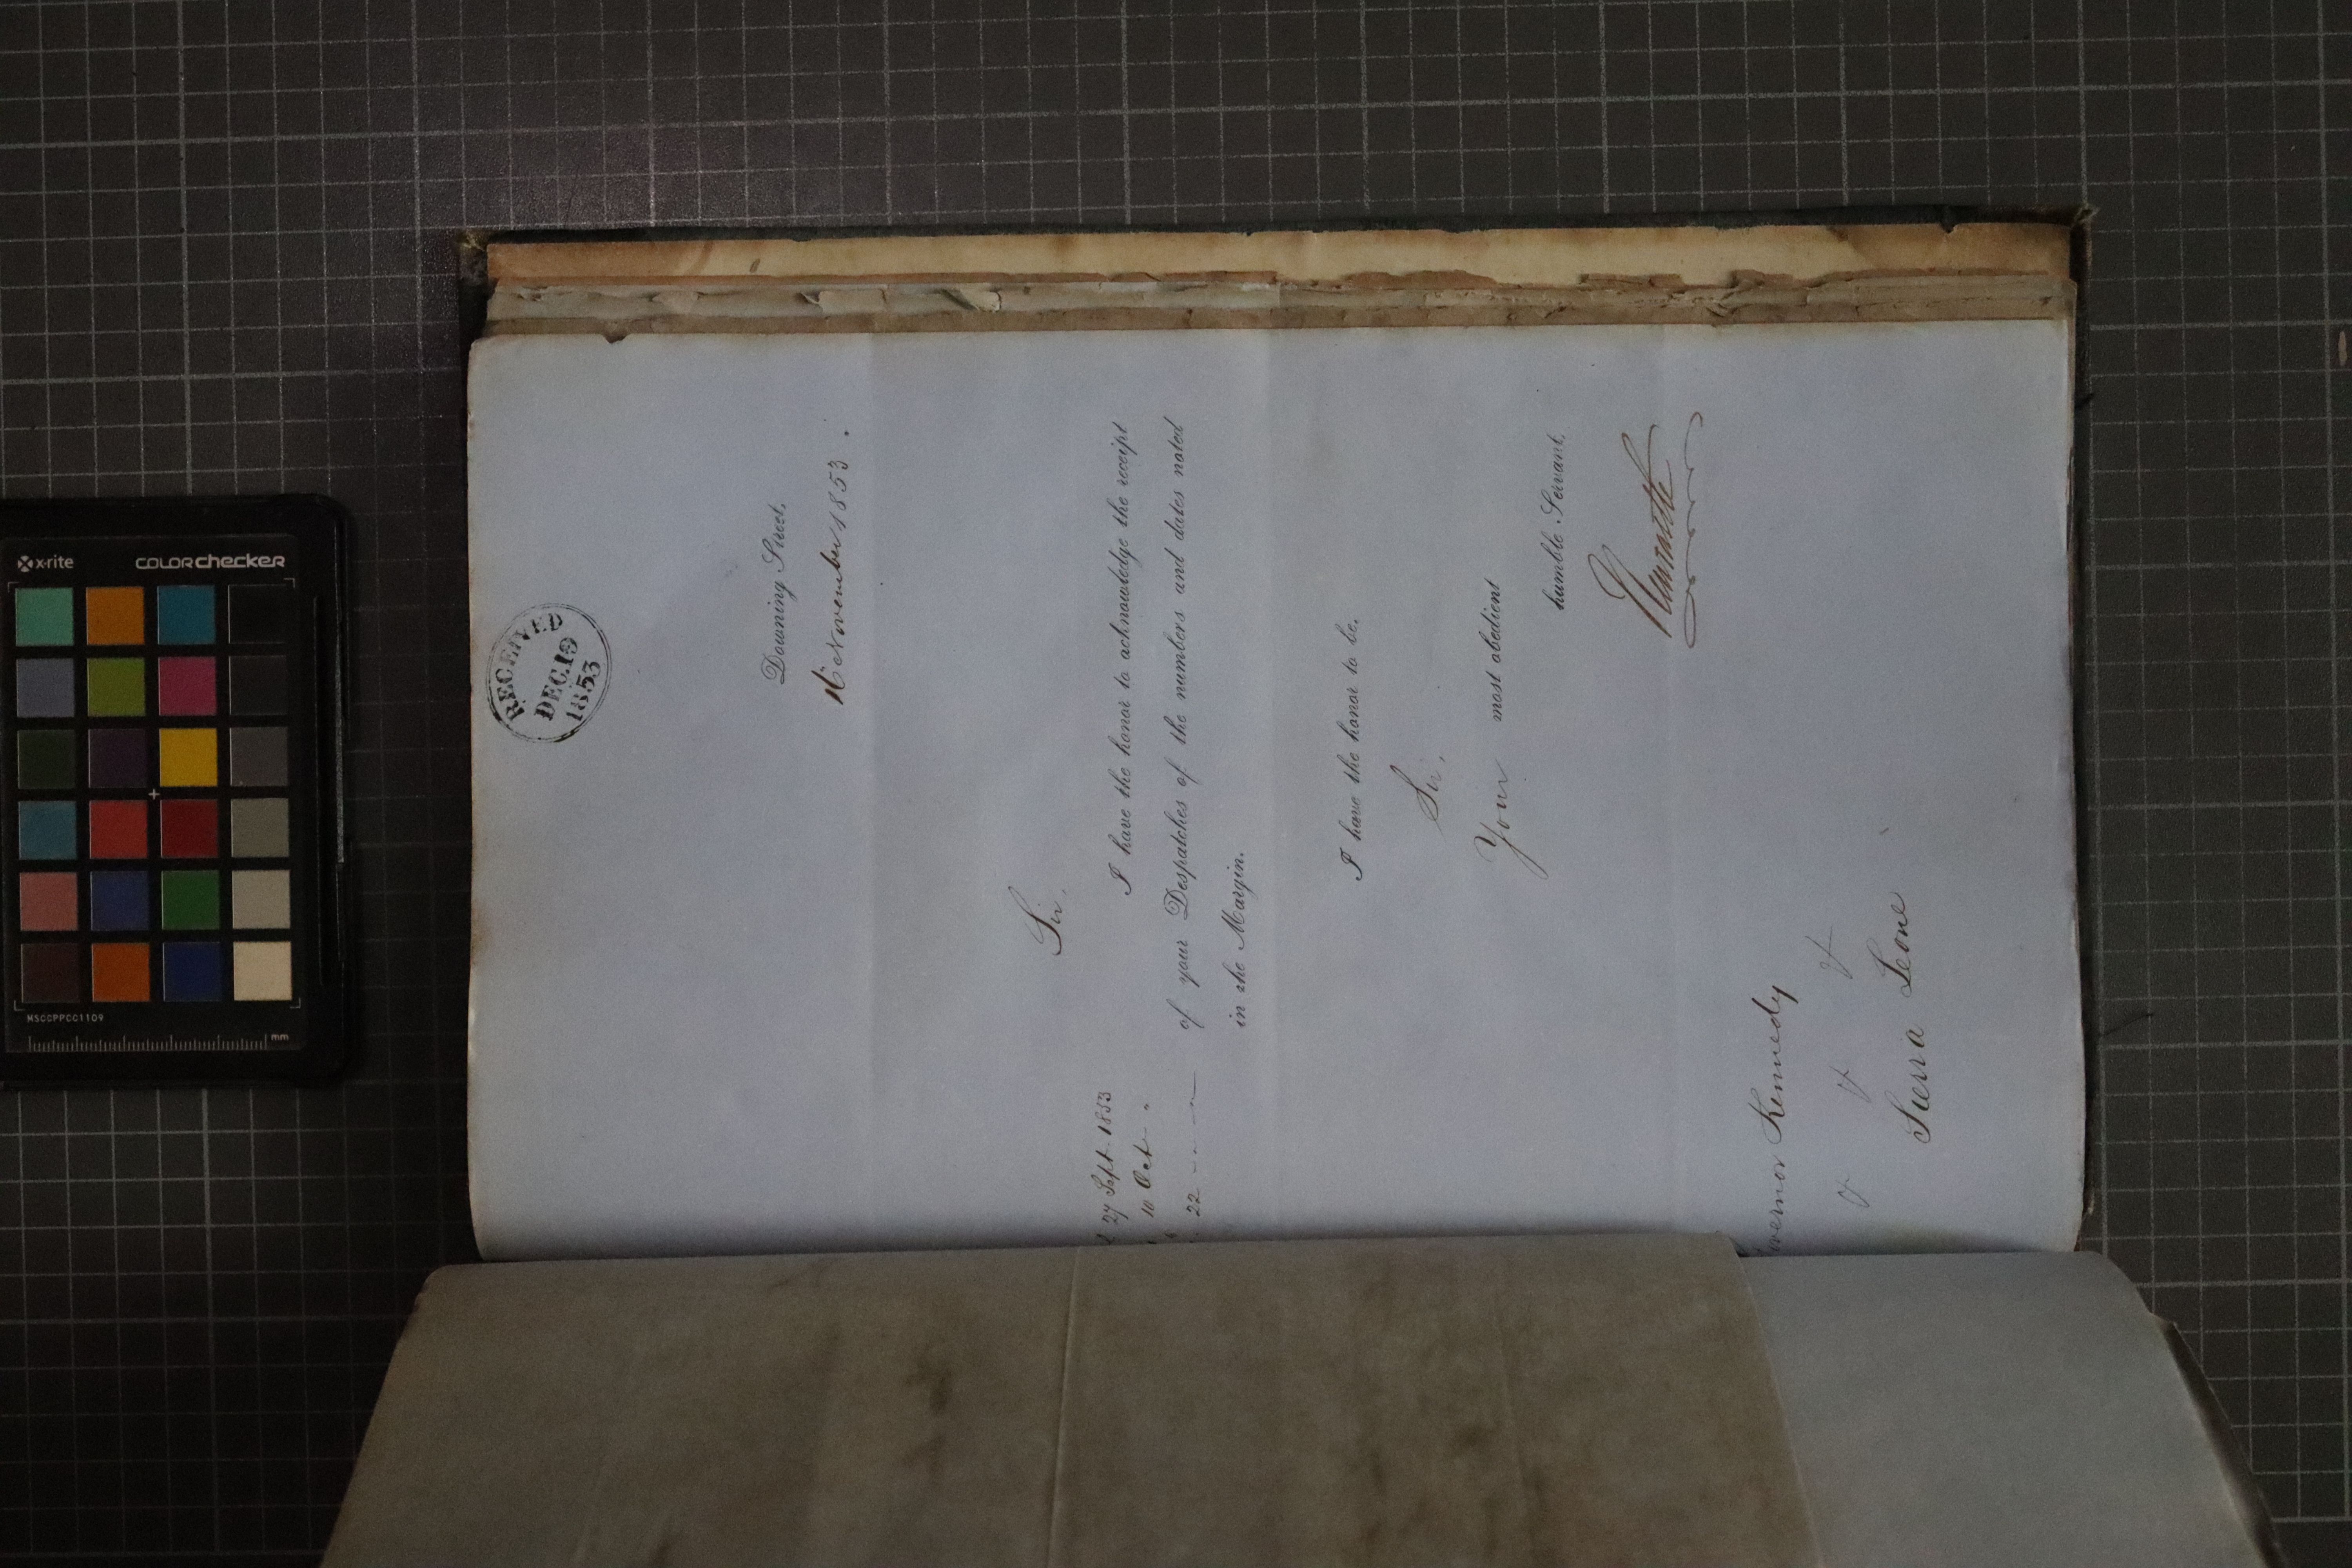 RECEIVED
DEC. 19
1853
Downing Street,
16 November 1853.
Sir,
27 Sept. 1853
10 Oct. "
22
I have the honor to acknowledge the receipt
of your Despatches of the numbers and dates noted
in the Margin.
I have the honor to be,
Sir,
Your most obedient
humble Servant,
Newcastle
Governor Kennedy
Sierra Leone
x-rite
colorchecker
MSCCPPCC1109
mm